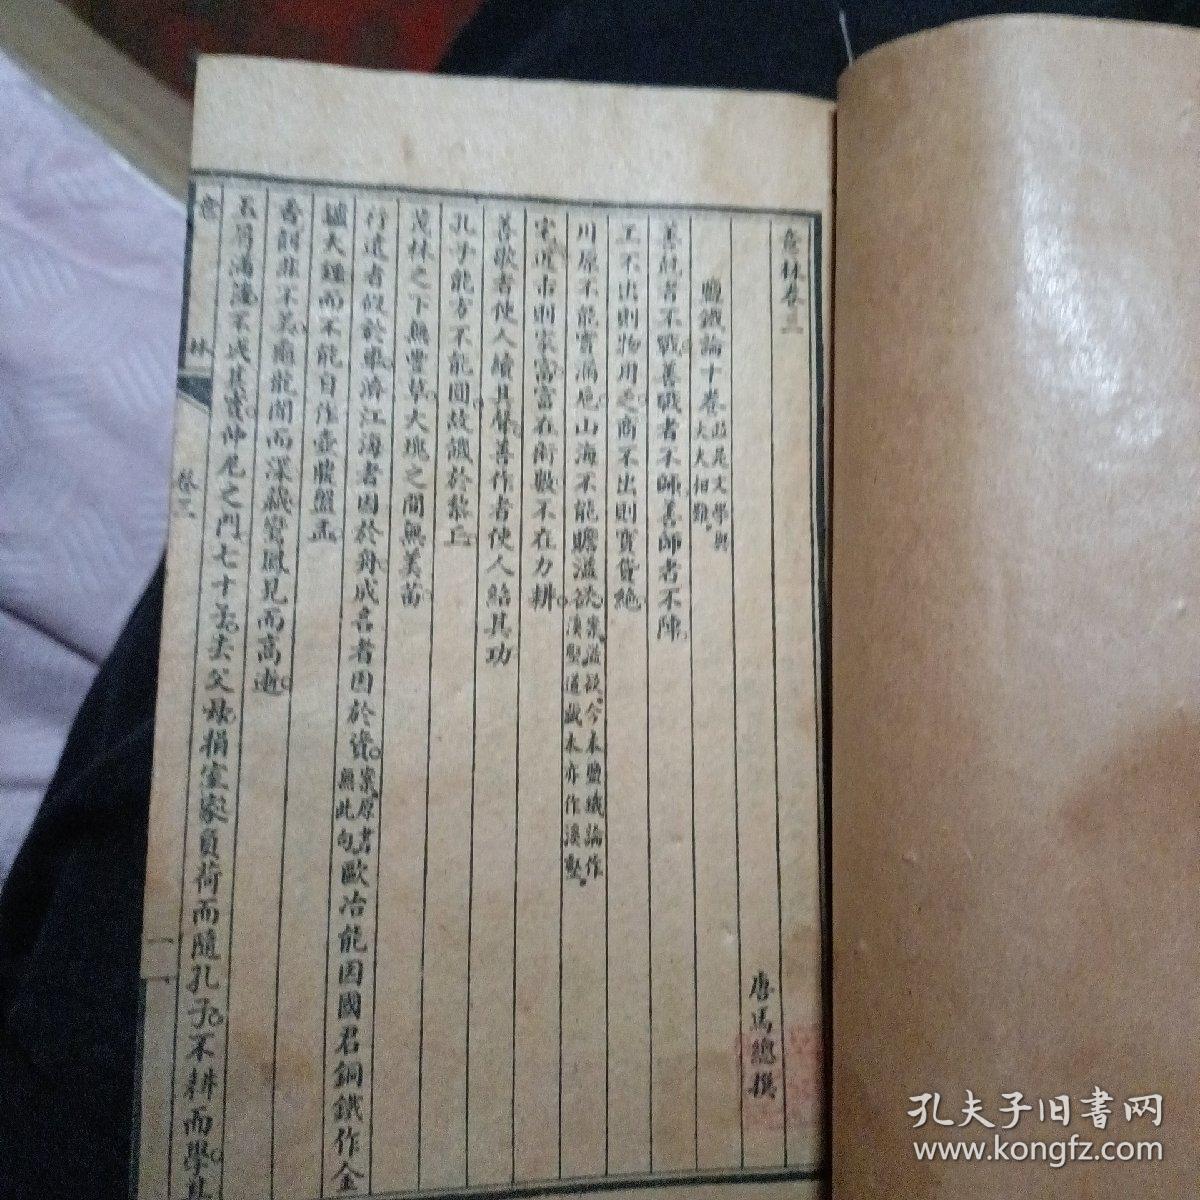 意林卷三
唐馬總撰
鹽鐵論十卷並是文學與大夫相難
善克者不戰善戰者不師善師者不陣
工不出則物用乏商不出則寶貨絶
川原不能實漏卮山海不能贍溢欲案溢欲今本鹽鐵論作溪壑道藏本亦作溪壑
宅近市則家富富在術數不在力耕
善歌者使人續其聲善作者使人紹其功
孔子能方不能圓故饑於黎丘
茂林之下無豐草大塊之間無美苗
行遠者假於車濟江海者因於舟成名者因於資案原書無此句歐冶能因國君銅鐵作金
鑪大鍾而不能自作壺鼎盤盂
香餌非不美龜龍聞而深藏鸞鳳見而高逝
玉屑滿篋不成其寶仲尼之門七十子去父母捐室家負荷而隨孔子不耕而學
意林
卷三
一
孔夫子旧書网
www.kongfz.com